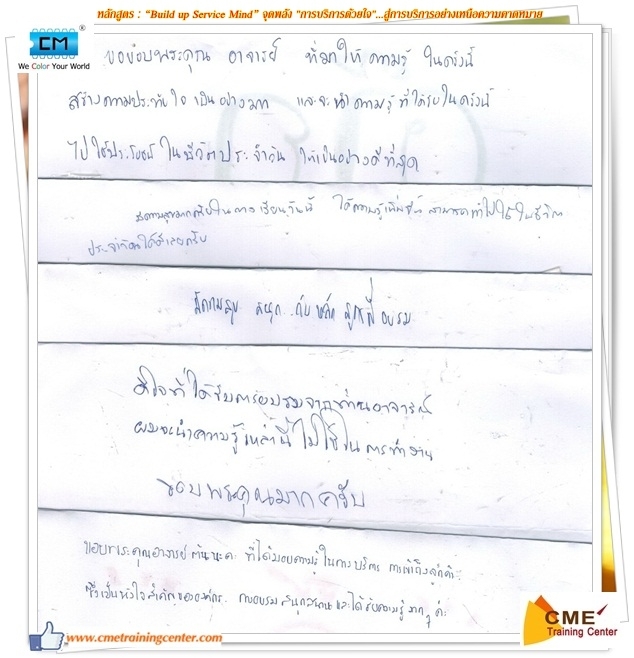 หลักสูตร : “Build up Service Mind” จุดพลัง "การบริการด้วยใจ"...สู่การบริการอย่างเหนือความคาดหมาย
CM
We Color Your World
ขอขอบพระคุณ อาจารย์ ที่มาให้ ความรู้ ในครั้งนี้
สร้างความประทับใจ เป็นอย่างมาก และจะนำความรู้ที่ได้รับในครั้งนี้
ไปใช้ประโยชน์ ในชีวิตประจำวัน ให้เป็นอย่างดีที่สุด
ในการเรียนวันนี้ ได้ความรู้เพิ่มขึ้น สามารถนำไปใช้ในชีวิต
ประจำวันได้ดีเลยครับ
มีความสุข สนุก กับ
ดีใจที่ได้รับการอบรมจากท่านอาจารย์
ผมจะนำความรู้เหล่านี้ไปใช้ในการทำงาน
ขอบพระคุณมากครับ
ขอบพระคุณอาจารย์ ที่ได้มอบความรู้ในการบริการ การเข้าถึงลูกค้า
ซึ่งเป็นหัวใจสำคัญขององค์กร. การอบรมสนุกสนานและได้รับความรู้มากๆค่ะ
www.cmetrainingcenter.com
CME
Training Center